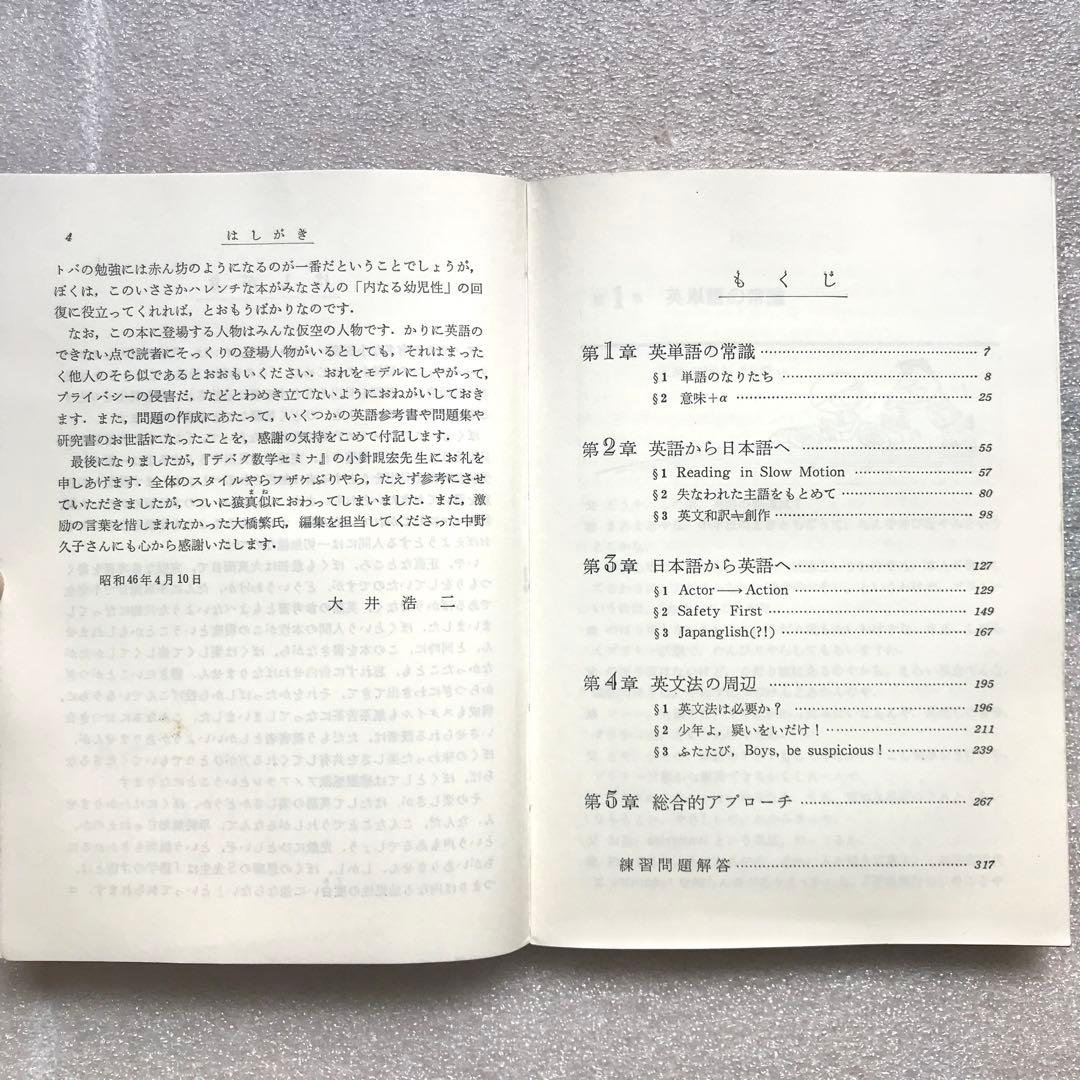 4
はしがき
トバの勉強には赤ん坊のようになるのが一番だということでしょうが，
ぼくは，このいささかハレンチな本がみなさんの「内なる幼児性」の回
復に役立ってくれれば，とおもうばかりなのです．
なお，この本に登場する人物はみんな仮空の人物です．かりに英語の
できない点で読者にそっくりの登場人物がいるとしても，それはまった
く他人のそら似であるとおおもいください．おれをモデルにしやがって，
プライバシーの侵害だ，などとわめき立てないようにおねがいしておき
ます．また，問題の作成にあたって，いくつかの英語参考書や問題集や
研究書のお世話になったことを，感謝の気持をこめて付記します．
最後になりましたが，『デバグ数学セミナ』の小針晛宏先生にお礼を
申しあげます．全体のスタイルやらフザケぶりやら，たえず参考にさせ
ていただきましたが，ついに猿真似におわってしまいました．また，激
励の言葉を惜しまれなかった大橋繁氏，編集を担当してくださった中野
久子さんにも心から感謝いたします．
昭和46年4月10日
大井浩二
もくじ
第1章 英単語の常識 7
§1 単語のなりたち 8
§2 意味+α 25
第2章 英語から日本語へ 55
§1 Reading in Slow Motion 57
§2 失なわれた主語をもとめて 80
§3 英文和訳≠創作 98
第3章 日本語から英語へ 127
§1 Actor→Action 129
§2 Safety First 149
§3 Japanglish(?!) 167
第4章 英文法の周辺 195
§1 英文法は必要か？ 196
§2 少年よ，疑いをいだけ！ 211
§3 ふたたび，Boys, be suspicious！ 239
第5章 総合的アプローチ 267
練習問題解答 317